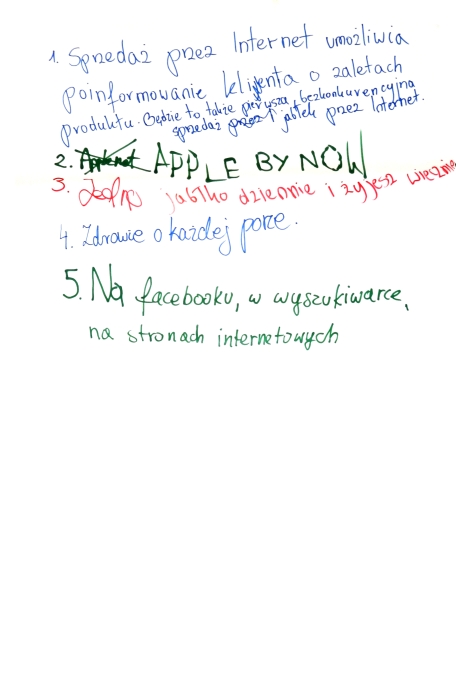 1. Sprzedaż przez Internet umożliwia
poinformowanie klijenta o zaletach
produktu. Będzie to także pierwsza, bezkonkurencyjna
sprzedaż jabłek przez Internet.
2. APPLE BY NOW
3. Jedno jabłko dziennie i żyjesz wiecznie
4. Zdrowie o każdej porze.
5. Na facebooku, w wyszukiwarce,
na stronach internetowych